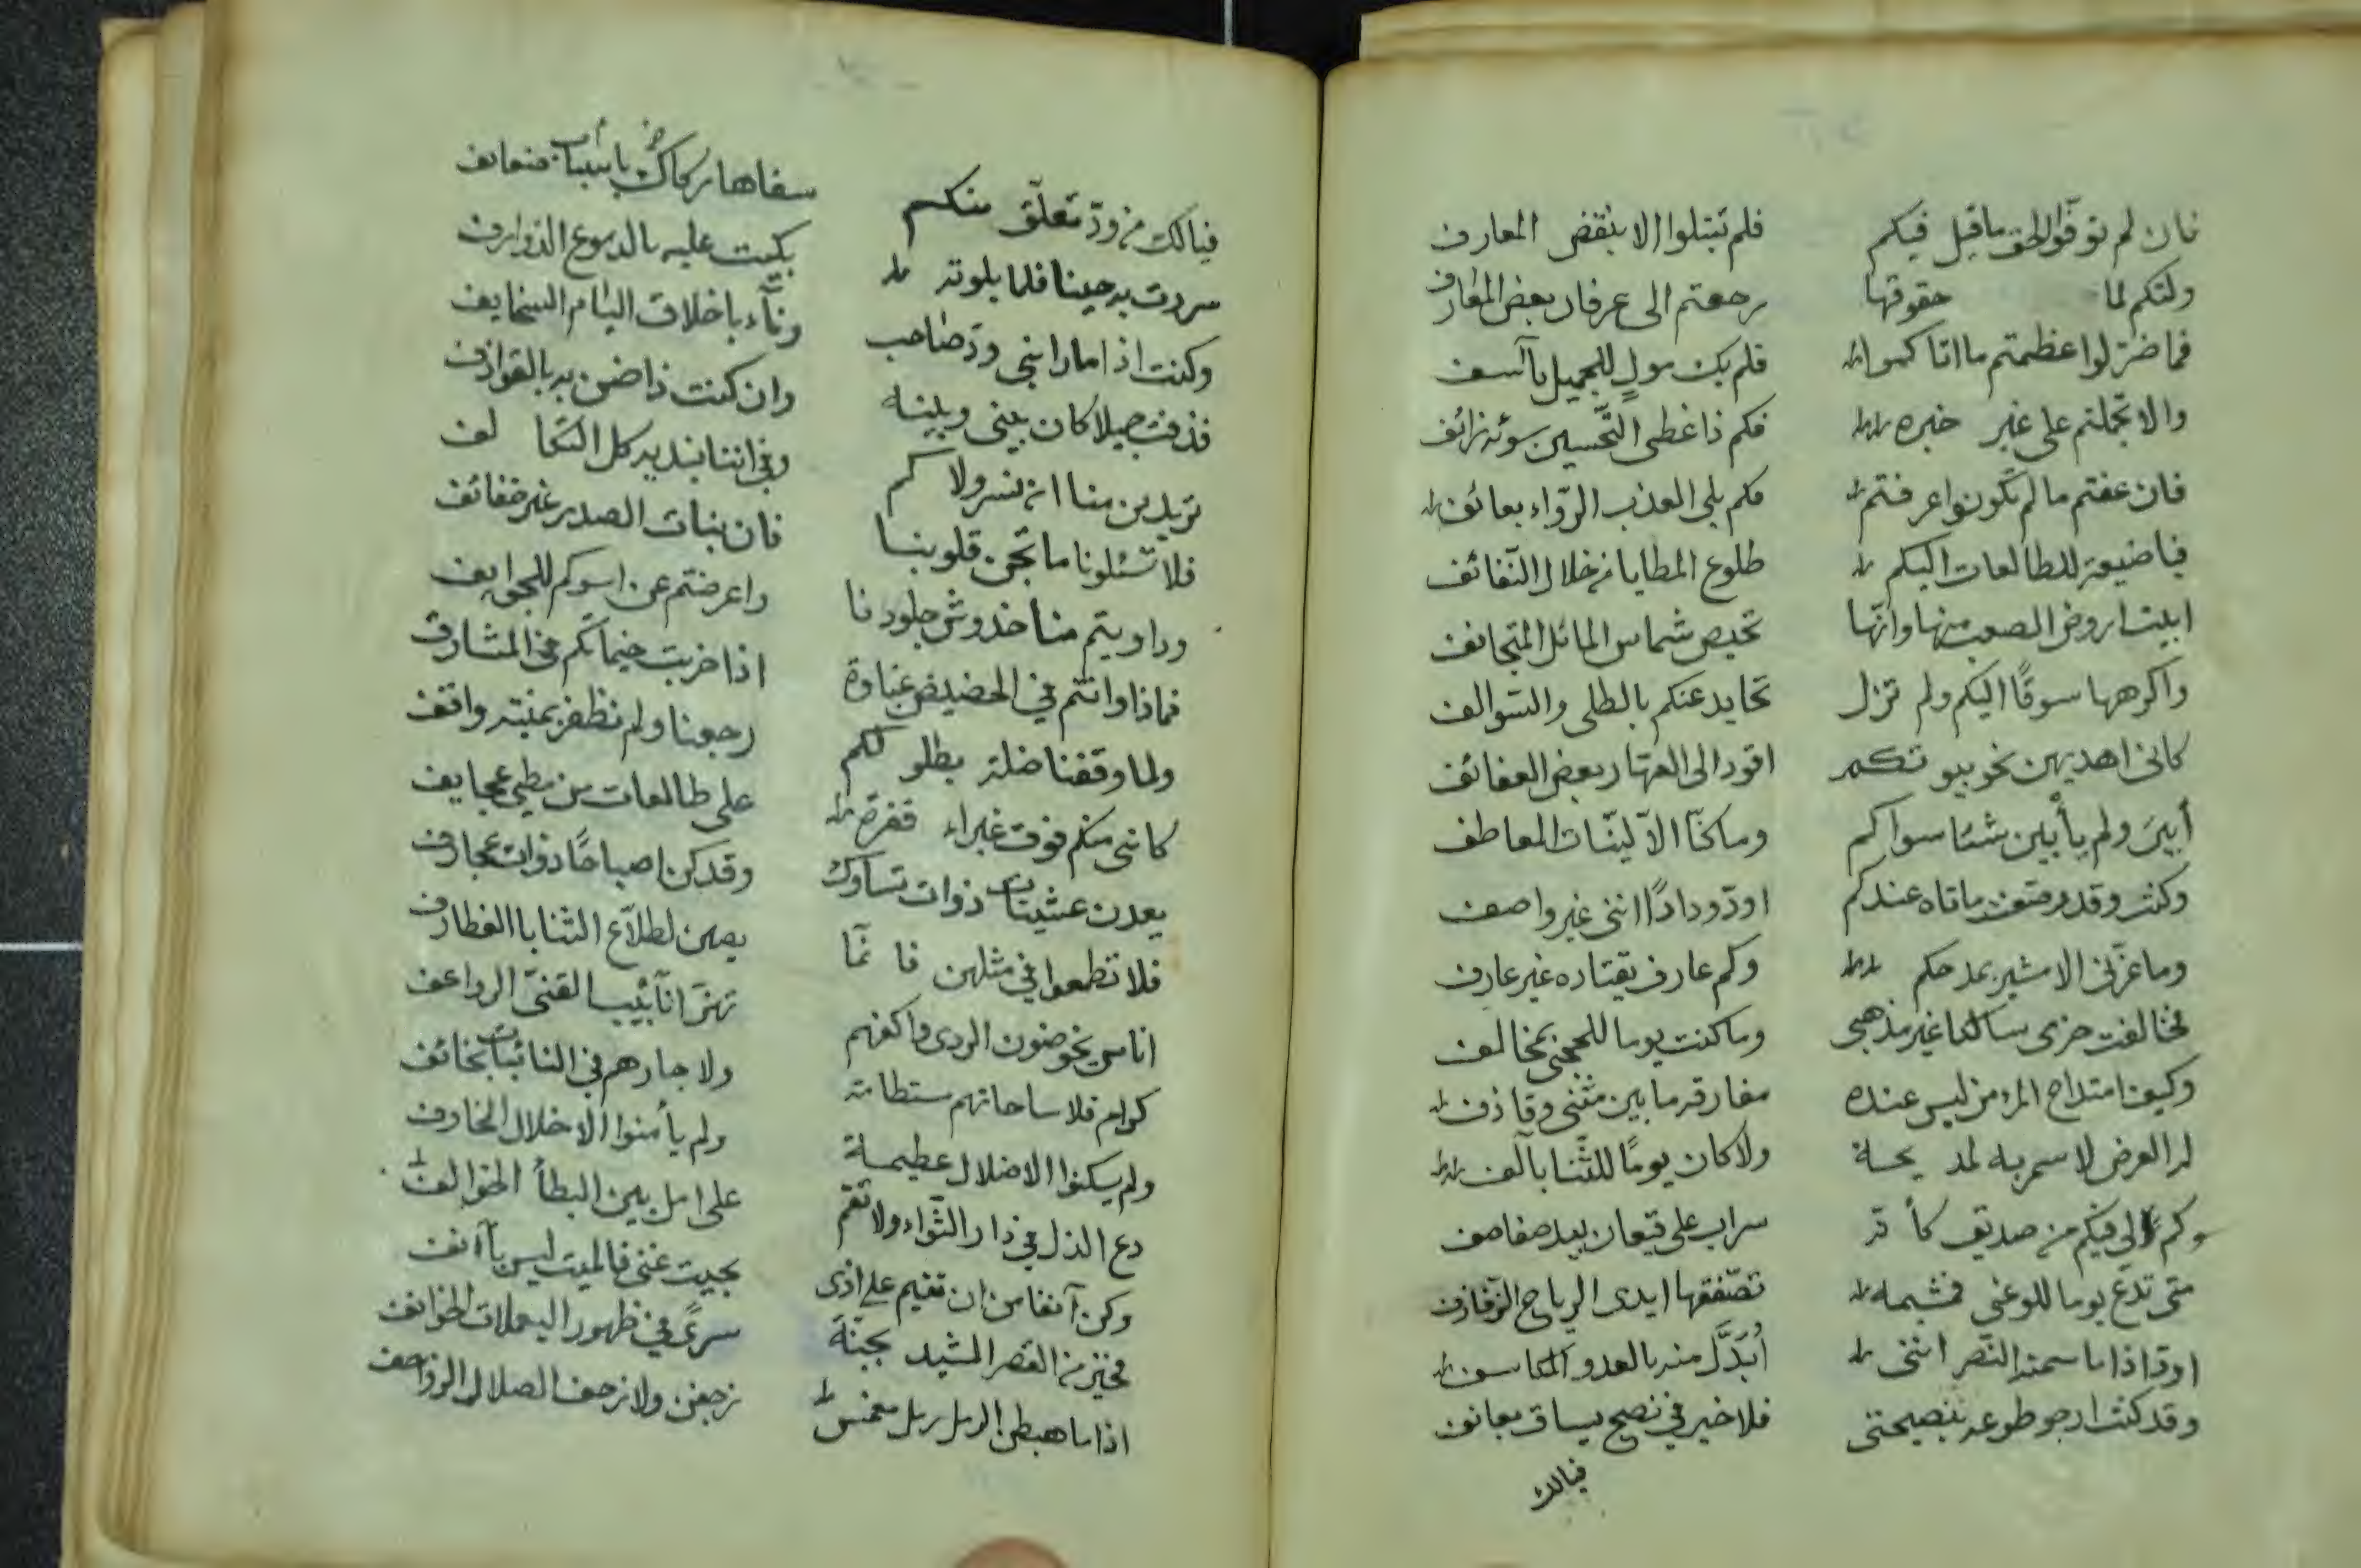 فان لم توفوا الحق ما قيل فيكم فلم تبتلوا الا بنقض المعارف
ولتكم لما حقوقها رجعتم الى عرفان بعض المعارف
فما ضر لوا عظمتم ما اتاكموا فلم يك مولٍ للجميل بآسف
والا تجملتم على غير خبره فكم ذا غطى التحسين سوئه زائف
فان عفتم ما لم تكونوا عرفتم فكم بلى العذب الرّواء بعائف
فيا ضيعة للطالعات اليكم طلوع المطايا من خلال النّفائف
ابيت اروض الصعب منها وانها تحيص شماس المائل المتجانف
واكرهها سوقًا اليكم ولم تزل تحايد عنكم بالطلى والسّوالف
كانى اهديهن نحو بيوتكم اقود الى العهّار بعض العفائف
أبينَ ولم يأبين شئا سواكم وما كنّا الاّ ليّنات المعاطف
وكنت وقد عندكم اودّ ودادًا اننى غير واصف
وما عزّنى الا مشير بمدحكم وكم عارف يقتاده غير عارف
فخالفت حزمى سالكا غير مذهبى وما كنت يوما للحجى بمخالف
وكيف امتداح المرء من ليس عنده مفارقه ما بين مثنى وقاذف
له العرض لا سمر به لمديحة ولا كان يومًا للثّنا بآلف
وكم لى فيكم من صديق كأنه سراب على قيعان بيد صفاصف
متى تدع يوما للوغى فشيمه تصفّقها ايدى الرياح الزّفازف
اودّ اذا ما سمته النّصر اننى أُبَدَّل منه بالعدو المكاسف
وقد كنت ارجو طوعه بنصيحتى فلا خير فى نصح يساق بعانف
فيالك
فيالك من ودّ تعلّق منكم سفاها بأسباب ضعايف
سررت به حينا فلما بلوته بكيت عليه بالدموع الذوارف
وكنت اذا ما رابنى ودّ صاحب وناء باخلاق اللئام السخايف
قذفت جميلا كان بينى وبينه وان كنت ذا ضن به بالقواذف
تريدين منا ان نسر ولاكم وفى اننا بنديه كل التكالف
فلا تسئلونا ما تجن قلوبنا فان بنات الصدر غير خفائف
وداويتم منا خدوش جلودنا واعرضتم عن اسوكم للجوايف
فماذا وانتم فى الحضيض غباوة اذا ضربت خيماتكم فى المشارف
ولما وقفنا ضلة بطلولكم رجعنا ولم نظفر بمنية واقف
كاننى منكم فوق غبراء قفرة على طالعات من مطى عجايف
يعدن عشيّات ذوات تساوك وقد كن اصباحًا ذوات عجارف
فلا تطمعوا فى مثلهن فانما يصبن لطلاّع الثنايا الغطارف
اناس يخوضون الردى واكفهم تهز انآبيب القنىّ الرواعف
كرام فلا ساحاتهم مستطامة ولا جارهم فى النائبات بخائف
ولم يسكنوا الا ضلال عظيمة ولم يأمنوا الا خلال المخاوف
دع الذل فى دار الثّواء ولا تقم على امل بين البطأ الخوالف
وكن آنفا من ان تقيم على اذى بحيث غنى فالميت ليس بآنف
فخير من القصر المشيد بجبنة سرىً فى ظهور اليعملات الخوانف
اذا ما هبطن الرمل رمل مغمس زحفن ولا زحف الصلال الزواحف